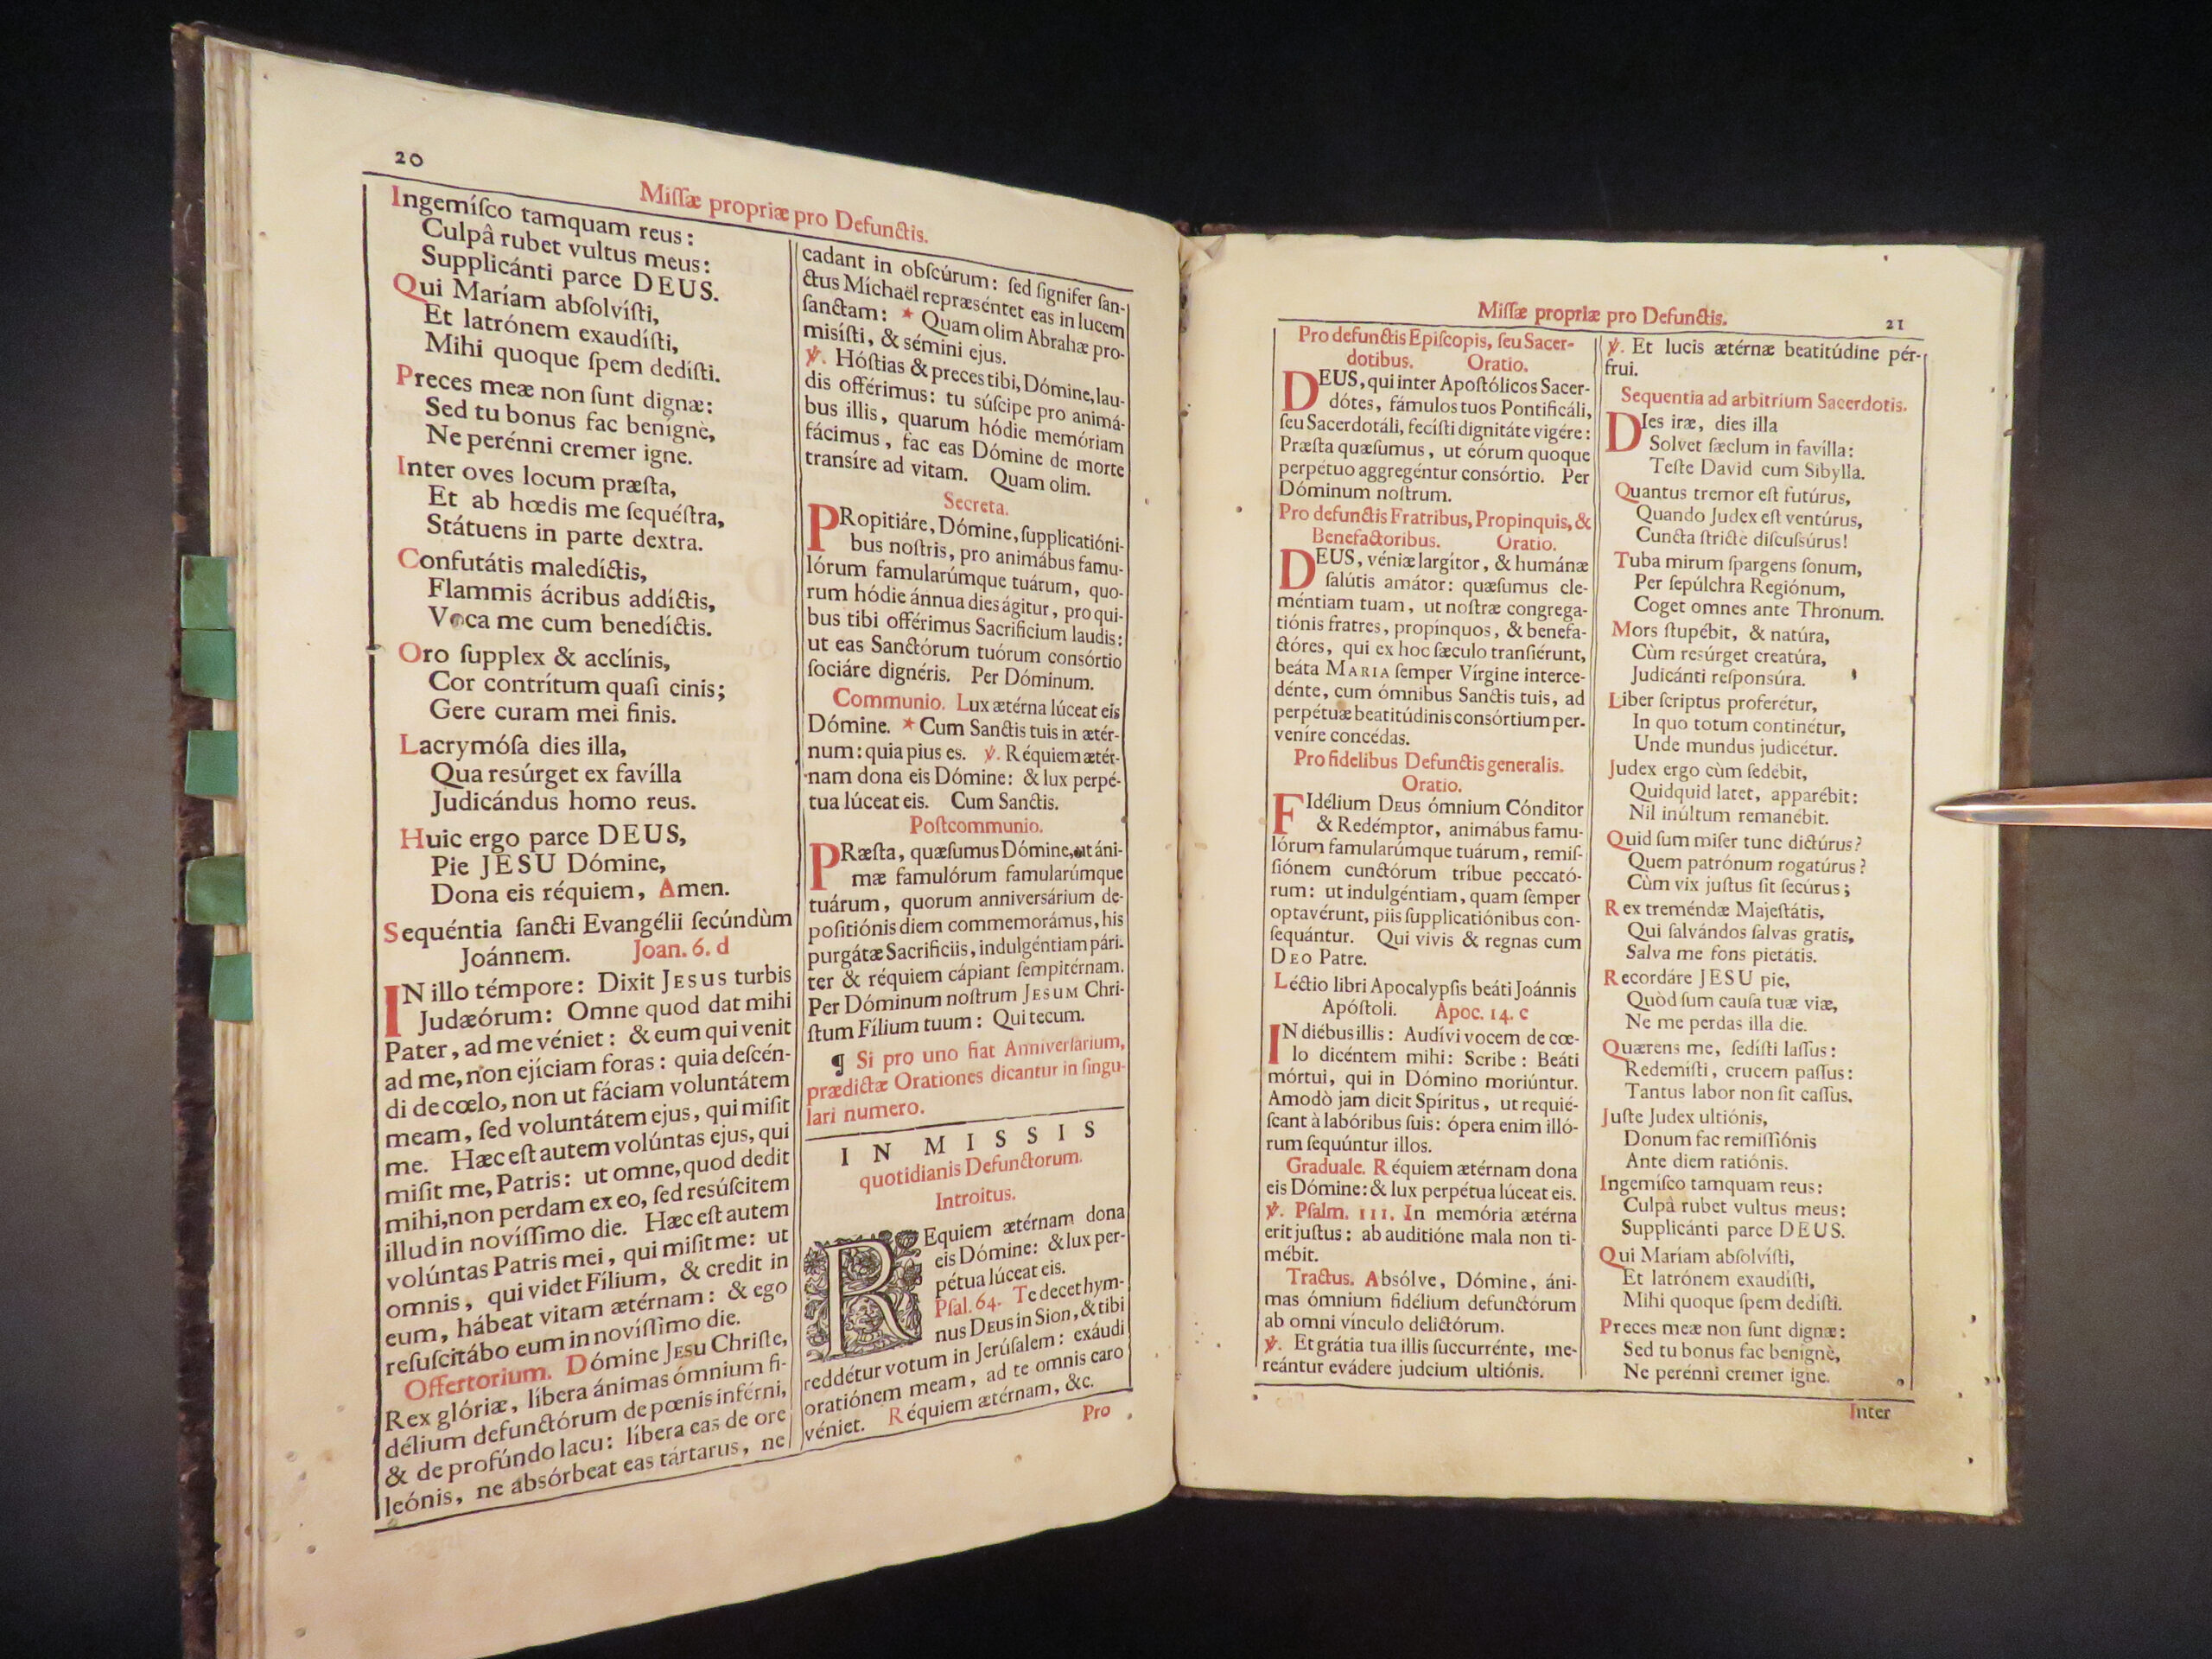 20
Miſſæ propriæ pro Defunctis.
Ingemíſco tamquam reus:
Culpâ rubet vultus meus:
Supplicánti parce DEUS.
Qui Maríam abſolvíſti,
Et latrónem exaudíſti,
Mihi quoque ſpem dedíſti.
Preces meæ non ſunt dignæ:
Sed tu bonus fac benígnè,
Ne perénni cremer igne.
Inter oves locum præſta,
Et ab hœdis me ſequéſtra,
Státuens in parte dextra.
Confutátis maledíctis,
Flammis ácribus addíctis,
Voca me cum benedíctis.
Oro ſupplex & acclínis,
Cor contrítum quaſi cinis;
Gere curam mei finis.
Lacrymóſa dies illa,
Qua resúrget ex favílla
Judicándus homo reus.
Huic ergo parce DEUS,
Pie JESU Dómine,
Dona eis réquiem, Amen.
Sequéntia ſancti Evangélii ſecúndùm
Joánnem. Joan. 6. d
IN illo témpore: Dixit JESUS turbis
Judæórum: Omne quod dat mihi
Pater, ad me véniet: & eum qui venit
ad me, non ejíciam foras: quia deſcén-
di de cœlo, non ut fáciam voluntátem
meam, ſed voluntátem ejus, qui miſit
me. Hæc eſt autem volúntas ejus, qui
miſit me, Patris: ut omne, quod dedit
mihi, non perdam ex eo, ſed resúſcitem
illud in novíſſimo die. Hæc eſt autem
volúntas Patris mei, qui miſit me: ut
omnis, qui videt Fílium, & credit in
eum, hábeat vitam ætérnam: & ego
reſuſcitábo eum in novíſſimo die.
Offertorium. Dómine JESU Chriſte,
Rex glóriæ, líbera ánimas ómnium fi-
délium defunctórum de pœnis inférni,
& de profúndo lacu: líbera eas de ore
leónis, ne absórbeat eas tártarus, ne
cadant in obſcúrum: ſed ſignifer ſan-
ctus Míchaël repræséntet eas in lucem
ſanctam: * Quam olim Abrahæ pro-
misíſti, & sémini ejus.
℣. Hóſtias & preces tibi, Dómine, lau-
dis offérimus: tu súſcipe pro animá-
bus illis, quarum hódie memóriam
fácimus, fac eas Dómine de morte
transíre ad vitam. Quam olim.
Secreta.
PRopitiáre, Dómine, ſupplicatióni-
bus noſtris, pro animábus famu-
lórum famularúmque tuárum, quo-
rum hódie ánnua dies ágitur, pro qui-
bus tibi offérimus Sacrificium laudis:
ut eas Sanctórum tuórum consórtio
ſociáre dignéris. Per Dóminum.
Communio. Lux ætérna lúceat eis
Dómine. * Cum Sanctis tuis in ætér-
num: quia pius es. ℣. Réquiem ætér-
nam dona eis Dómine: & lux perpé-
tua lúceat eis. Cum Sanctis.
Poſtcommunio.
PRæſta, quæſumus Dómine, ut áni-
mæ famulórum famularúmque
tuárum, quorum anniversárium de-
poſitiónis diem commemorámus, his
purgátæ Sacrificiis, indulgéntiam pári-
ter & réquiem cápiant ſempitérnam.
Per Dóminum noſtrum JESUM Chri-
ſtum Fílium tuum: Qui tecum.
¶ Si pro uno fiat Anniverſarium,
prædictæ Orationes dicantur in ſingu-
lari numero.
IN MISSIS
quotidianis Defunctorum.
Introitus.
REquiem ætérnam dona
eis Dómine: & lux per-
pétua lúceat eis.
Pſal. 64. Te decet hym-
nus DEUS in Sion, & tibi
reddétur votum in Jerúſalem: exáudi
oratiónem meam, ad te omnis caro
véniet. Réquiem ætérnam, &c.
Pro
Miſſæ propriæ pro Defunctis.
21
Pro defunctis Epiſcopis, ſeu Sacer-
dotibus. Oratio.
DEUS, qui inter Apoſtólicos Sacer-
dótes, fámulos tuos Pontificáli,
ſeu Sacerdotáli, fecíſti dignitáte vigére:
Præſta quæſumus, ut eórum quoque
perpétuo aggregéntur consórtio. Per
Dóminum noſtrum.
Pro defunctis Fratribus, Propinquis, &
Benefactoribus. Oratio.
DEUS, véniæ largítor, & humánæ
ſalútis amátor: quæſumus cle-
méntiam tuam, ut noſtræ congrega-
tiónis fratres, propínquos, & benefa-
ctóres, qui ex hoc ſæculo tranſiérunt,
beáta MARIA ſemper Vírgine interce-
dénte, cum ómnibus Sanctis tuis, ad
perpétuæ beatitúdinis consórtium per-
veníre concédas.
Pro fidelibus Defunctis generalis.
Oratio.
FIdélium DEUS ómnium Cónditor
& Redémptor, animábus famu-
lórum famularúmque tuárum, remiſ-
ſiónem cunctórum tríbue peccató-
rum: ut indulgéntiam, quam ſemper
optavérunt, piis ſupplicatiónibus con-
ſequántur. Qui vivis & regnas cum
DEO Patre.
Léctio libri Apocalypſis beáti Joánnis
Apóſtoli. Apoc. 14. c
IN diébus illis: Audívi vocem de cœ-
lo dicéntem mihi: Scribe: Beáti
mórtui, qui in Dómino moriúntur.
Amodò jam dicit Spíritus, ut requié-
ſcant à labóribus ſuis: ópera enim illó-
rum ſequúntur illos.
Graduale. Réquiem ætérnam dona
eis Dómine: & lux perpétua lúceat eis.
℣. Pſalm. 111. In memória ætérna
erit juſtus: ab auditióne mala non ti-
mébit.
Tractus. Absólve, Dómine, áni-
mas ómnium fidélium defunctórum
ab omni vínculo delictórum.
℣. Et grátia tua illis ſuccurrénte, me-
reántur evádere judcium ultiónis.
℣. Et lucis ætérnæ beatitúdine pér-
frui.
Sequentia ad arbitrium Sacerdotis.
DIes iræ, dies illa
Solvet ſæclum in favílla:
Teſte David cum Sibylla.
Quantus tremor eſt futúrus,
Quando Judex eſt ventúrus,
Cuncta ſtrictè diſcuſsúrus!
Tuba mirum ſpargens ſonum,
Per ſepúlchra Regiónum,
Coget omnes ante Thronum.
Mors ſtupébit, & natúra,
Cùm resúrget creatúra,
Judicánti reſponsúra.
Liber ſcriptus proferétur,
In quo totum continétur,
Unde mundus judicétur.
Judex ergo cùm ſedébit,
Quidquid latet, apparébit:
Nil inúltum remanébit.
Quid ſum miſer tunc dictúrus?
Quem patrónum rogatúrus?
Cùm vix juſtus ſit ſecúrus;
Rex treméndæ Majeſtátis,
Qui ſalvándos ſalvas gratis,
Salva me fons pietátis.
Recordáre JESU pie,
Quòd ſum cauſa tuæ viæ,
Ne me perdas illa die.
Quærens me, ſedíſti laſſus:
Redemíſti, crucem paſſus:
Tantus labor non ſit caſſus.
Juſte Judex ultiónis,
Donum fac remiſſiónis
Ante diem ratiónis.
Ingemíſco tamquam reus:
Culpâ rubet vultus meus:
Supplicánti parce DEUS.
Qui Maríam abſolvíſti,
Et latrónem exaudíſti,
Mihi quoque ſpem dedíſti.
Preces meæ non ſunt dignæ:
Sed tu bonus fac benígnè,
Ne perénni cremer igne.
Inter